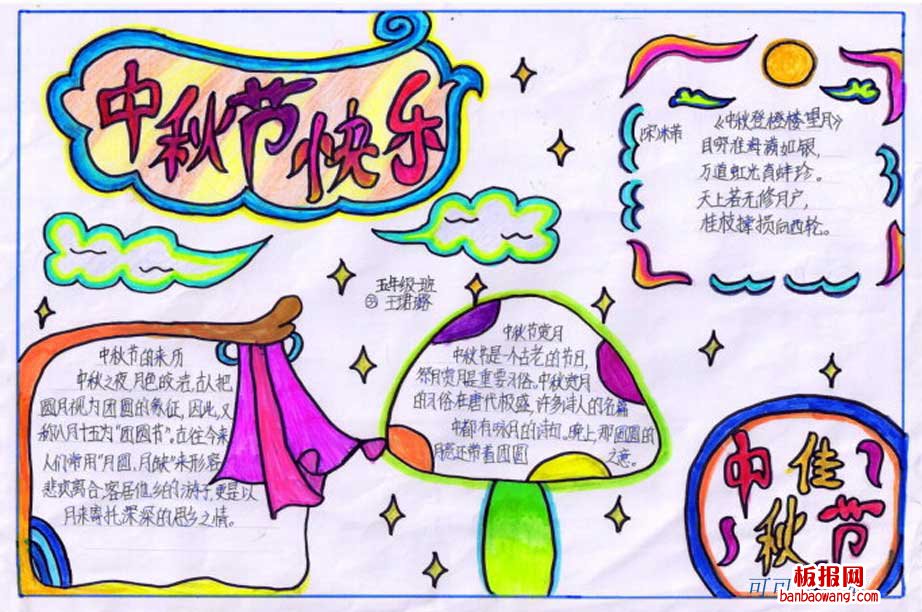 中秋节快乐
《中秋登楼望月》
目穷淮海满如银，
万道虹光育蚌珍。
天上若无修月户，
桂枝撑损向西轮。
五年级一班
王珺
中秋节的来历
中秋之夜，月色皎洁，古人把
圆月视为团圆的象征，因此，又
称八月十五为“团圆节”。古往今来，
人们常用“月圆、月缺”来形容
悲欢离合，客居他乡的游子，更是以
月来寄托深深的思乡之情。
中秋节赏月
中秋节是一个古老的节日，
祭月赏月是重要习俗。中秋赏月
的习俗在唐代极盛，许多诗人的名篇
中都有咏月的诗句。晚上，那圆圆的
月意还带着团圆之意。
中秋佳节
板报网
banbaowang.com